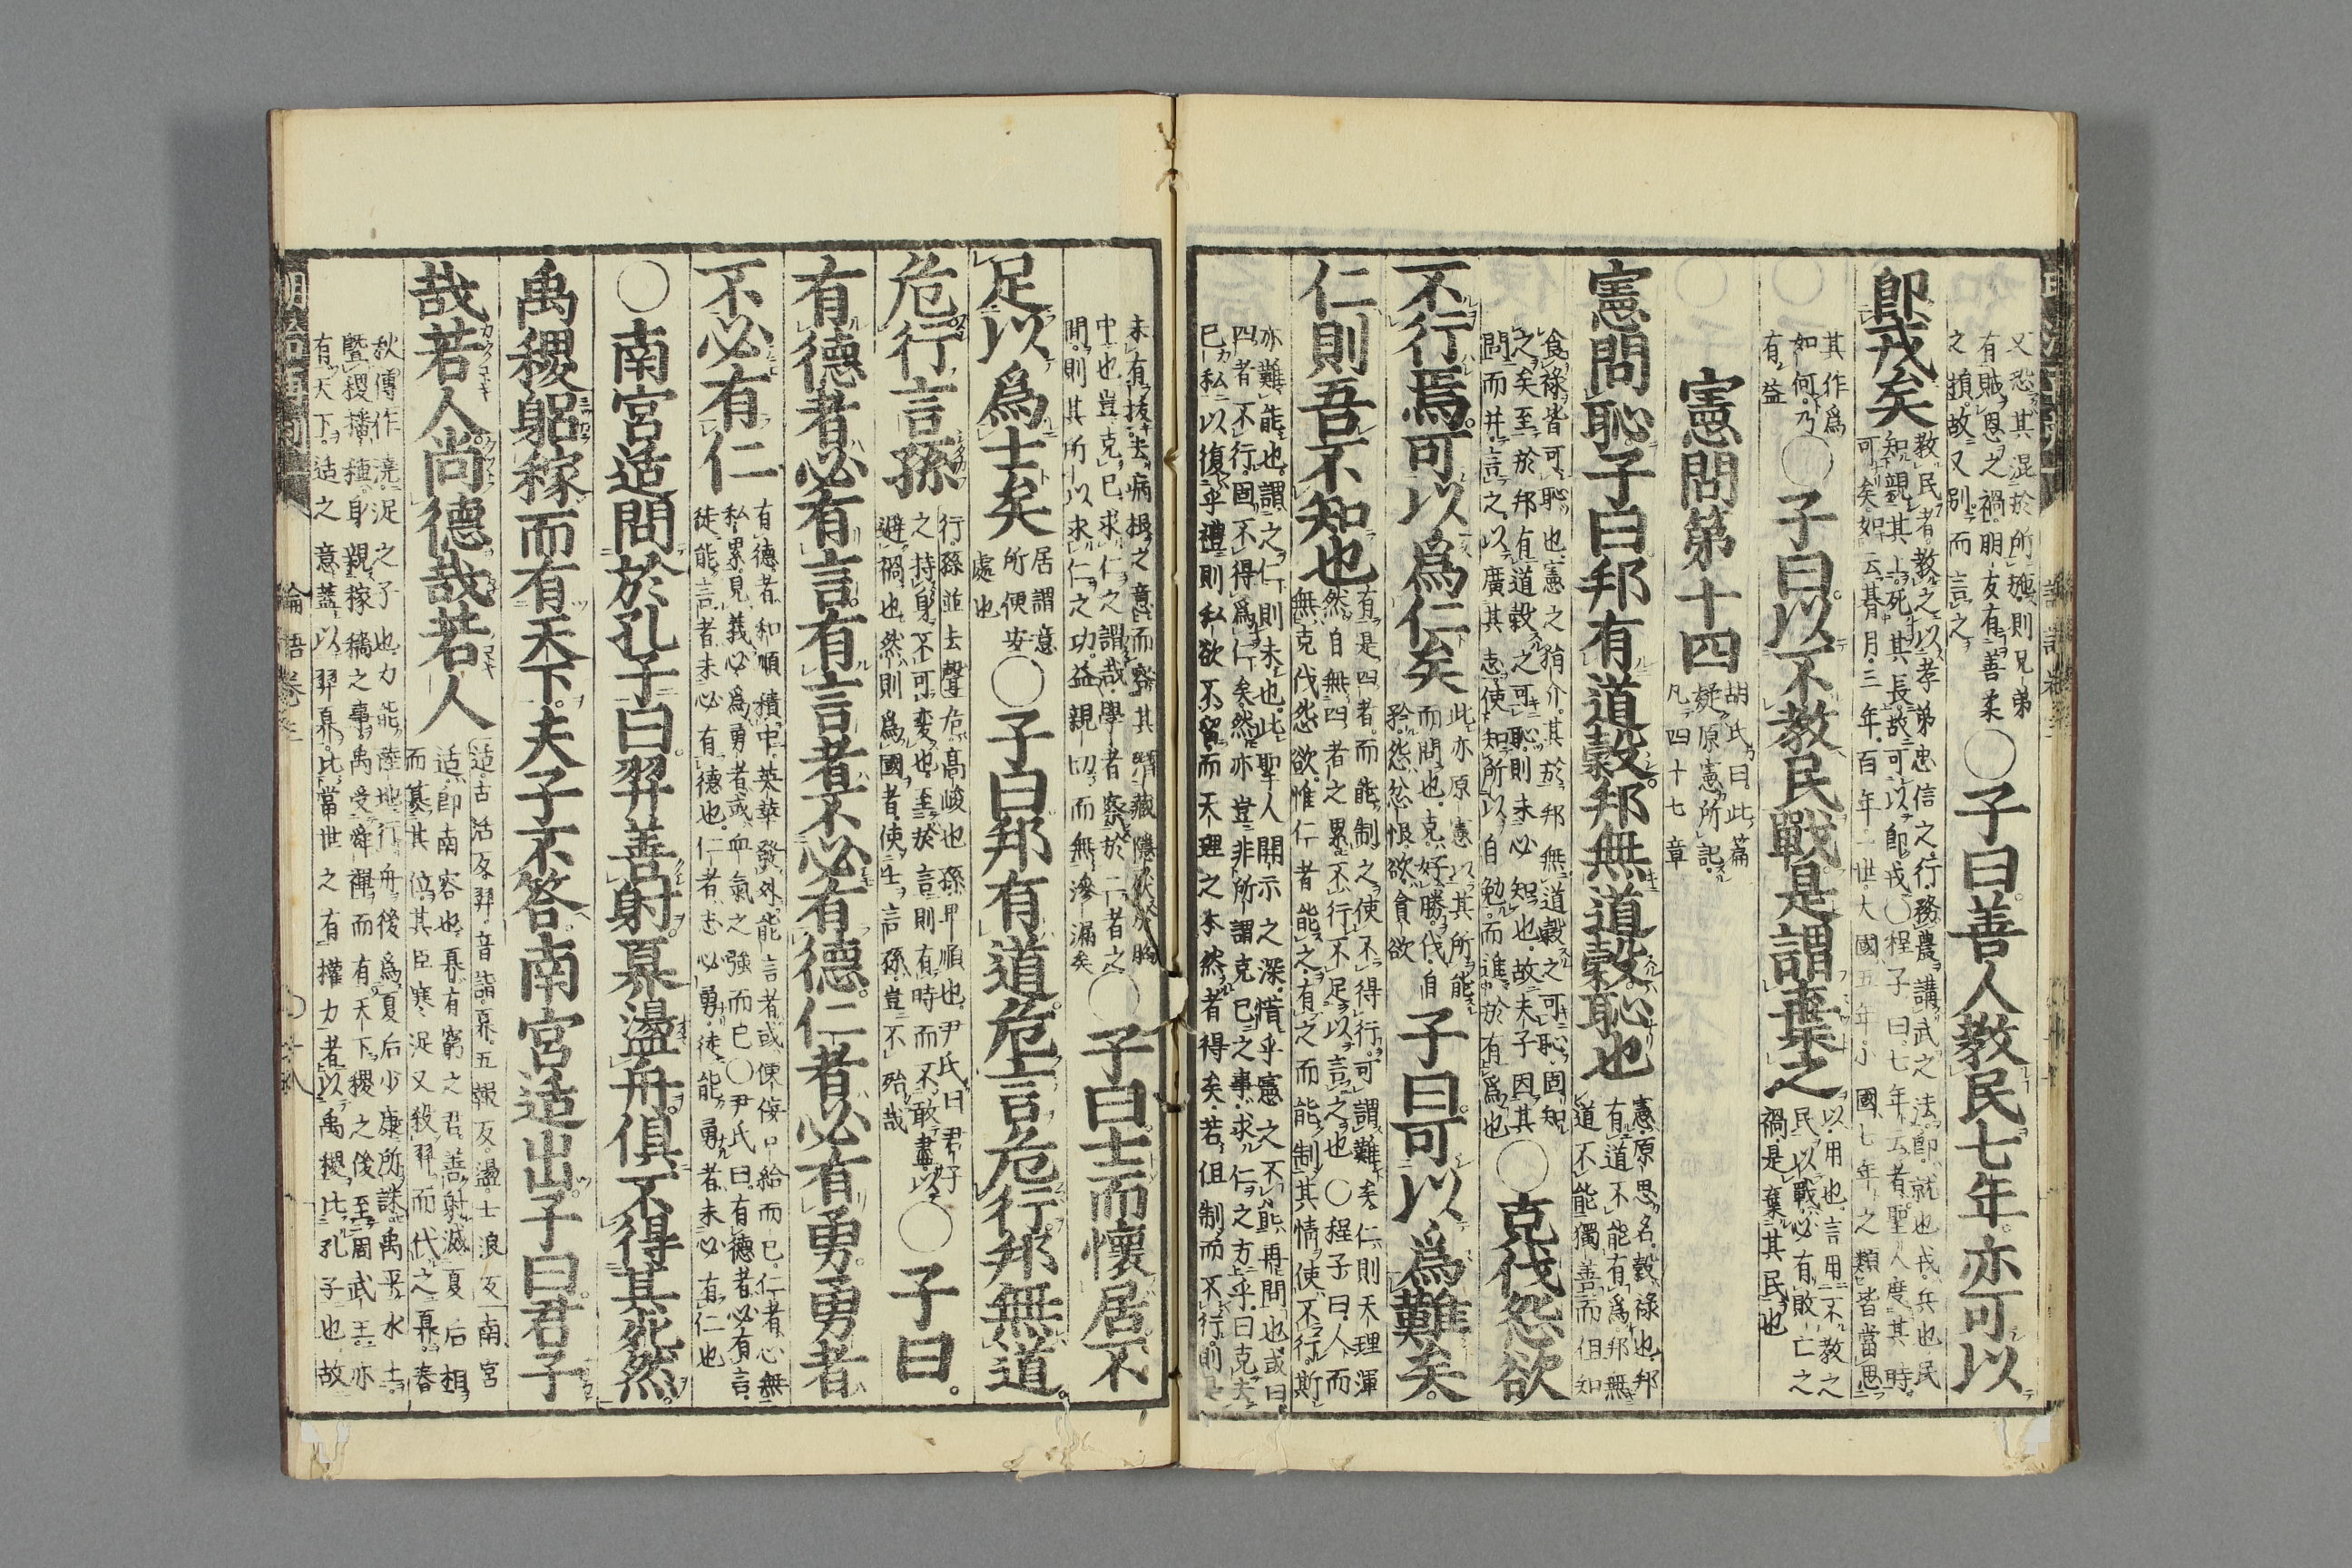 又恐其混於所施則兄弟
有賊恩之禍朋友有善柔
之損故又別而言之
○子曰善人教民七年亦可以
即戎矣
教民者教之以孝弟忠信之行務農講武之法即就也戎兵也民
知親其上死其長故可以即戎○程子曰七年云者聖人度其時
可矣如云朞月三年百年一世大國五年小國七年之類皆當思
其作爲
如何乃
有益
○子曰以不教民戰是謂棄之
以用也言用不教之
民以戰必有敗亡之
禍是棄其民也
憲問第十四
胡氏曰此篇
疑原憲所記
凡四十七章
憲問恥子曰邦有道穀邦無道穀恥也
憲原思名穀祿也邦
有道不能有爲邦無
道不能獨善而但知
食祿皆可恥也憲之狷介其於邦無道穀之可恥固知
之矣至於邦有道穀之可恥則未必知也故夫子因其
問而并言之以廣其志使知所以自勉而進於有爲也
○克伐怨欲
不行焉可以爲仁矣
此亦原憲以其所能
而問也克好勝伐自
矜怨忿恨欲貪欲
子曰可以爲難矣
仁則吾不知也
有是四者而能制之使不得行可謂難矣仁則天理渾
然自無四者之累不行不足以言之也○程子曰人而
無克伐怨欲惟仁者能之有之而能制其情使不行斯
亦難能也謂之仁則未也此聖人開示之深惜乎憲之不能再問也或曰
四者不行固不得爲仁矣然亦豈非所謂克己之事求仁之方乎曰克去
己私以復乎禮則私欲不留而天理之本然者得矣若但制而不行則是
未有拔去病根之意而容其潛藏隱伏於胸
中也豈克己求仁之謂哉學者察於二者之
間則其所以求仁之功益親切而無滲漏矣
○子曰士而懷居不
足以爲士矣
居謂意
所便安
處也
○子曰邦有道危言危行邦無道
危行言孫
行孫並去聲危高峻也孫卑順也尹氏曰君子
之持身不可変也至於言則有時而不敢盡以
避禍也然則爲國者使士言孫豈不殆哉
○子曰
有德者必有言有言者不必有德仁者必有勇勇者
不必有仁
有德者和順積中英華發外能言者或便佞口給而已仁者心無
私累見義必爲勇者或血氣之強而已○尹氏曰有德者必有言
徒能言者未必有德也仁者志必勇徒能勇者未必有仁也
○南宮适問於孔子曰羿善射奡盪舟俱不得其死然
禹稷躬稼而有天下夫子不答南宮适出子曰君子
哉若人尚德哉若人
适古活反羿音詣奡五報反盪土浪反南宮
适即南容也奡有窮之君善射滅夏后相
而簒其位其臣寒浞又殺羿而代之奡春
秋傳作澆浞之子也力能陸地行舟後爲夏后少康所誅禹平水土
曁稷播種身親稼穡之事禹受舜禪而有天下稷之後至周武王亦
有天下适之意蓋以羿奡比當世之有權力者以禹稷比孔子也故
論語卷三